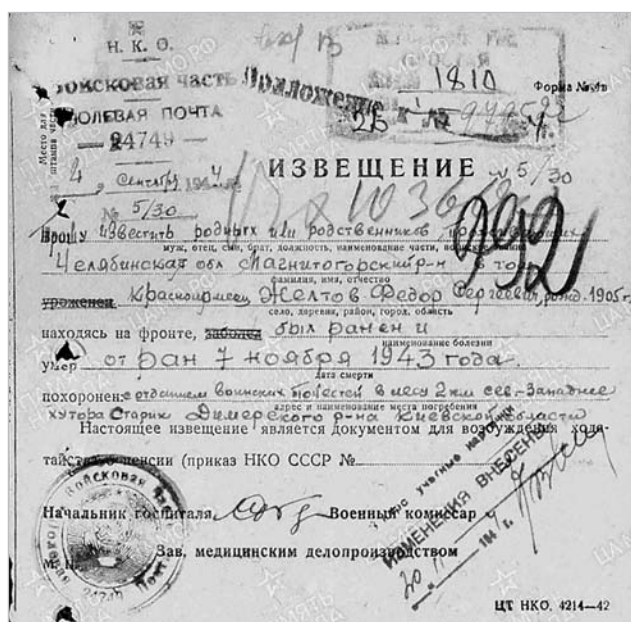 Н. К. О.
Войсковая часть
Приложение
ПОЛЕВАЯ ПОЧТА
— 24749 —
1810
Форма № 4в
Место для штампа части
2 Сентября 194
№ 5/30
ИЗВЕЩЕНИЕ № 5/30
992
Прошу известить родных или родственников проживающих
муж, отец, сын, брат, должность, наименование части, воинское звание
Челябинская обл Магнитогорский р-н в том
фамилия, имя, отчество
уроженец Красноармеец Желтов Федор Сергеевич, рожд. 1905 г.
село, деревня, район, город, область
находясь на фронте, заболел был ранен и
наименование болезни
умер от ран 7 ноября 1943 года
дата смерти
похоронен с отданием воинских почестей в лесу 2 км сев-Западнее
адрес и наименование места погребения
хутора Старик Димерского р-на Киевской области
Настоящее извещение является документом для возбуждения хода-
тайства о пенсии (приказ НКО СССР №
Начальник госпиталя
Военный комиссар
Зав. медицинским делопроизводством
М. П.
Войсковая часть
Полевая Почта
24749
учетные карточки
ИЗМЕНЕНИЯ ВНЕСЕНЫ
20 11 194 г.
ЦТ НКО. 4214—42